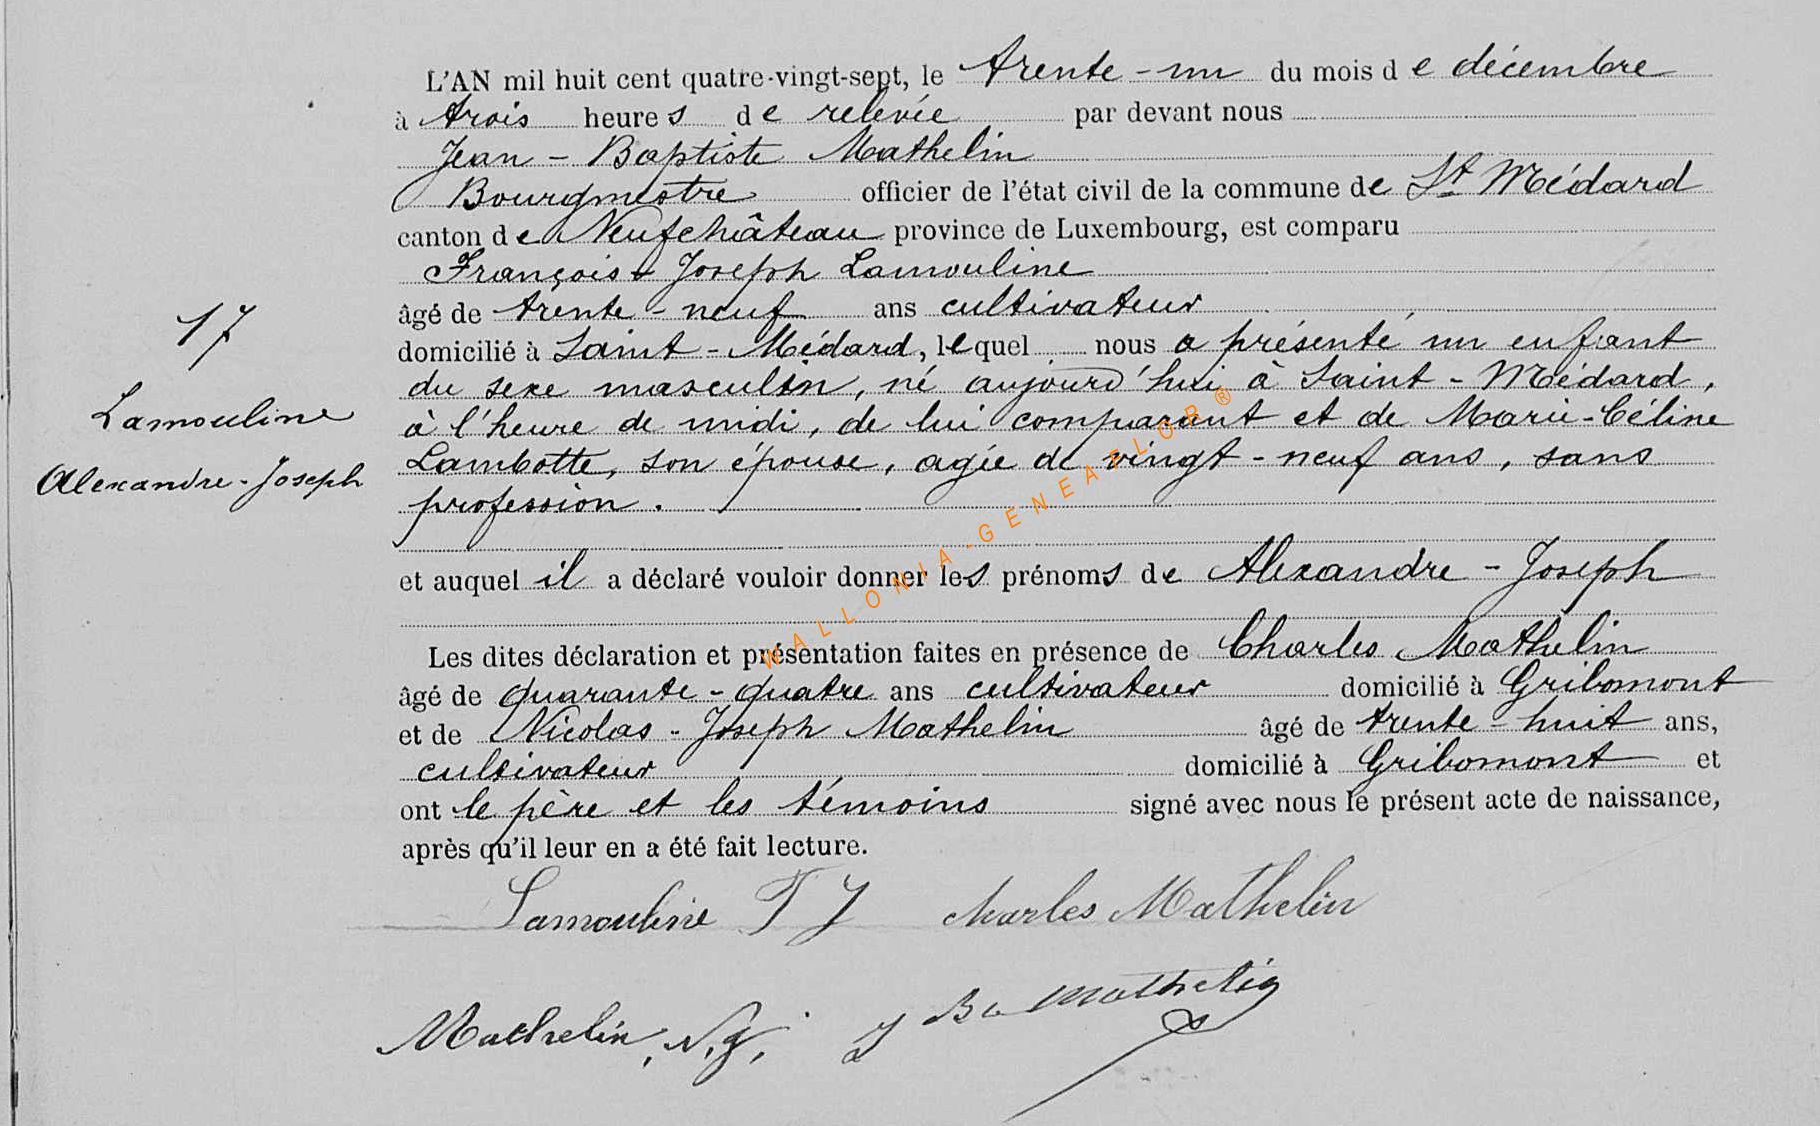 L'AN mil huit cent quatre-vingt-sept, le trente-un du mois de décembre
à trois heures de relevée par devant nous
Jean-Baptiste Mathelin
Bourgmestre officier de l'état civil de la commune de St Médard
canton de Neufchâteau province de Luxembourg, est comparu
François-Joseph Lamouline
âgé de trente-neuf ans cultivateur
domicilié à Saint-Médard, lequel nous a présenté un enfant
du sexe masculin, né aujourd'hui à Saint-Médard,
à l'heure de midi, de lui comparant et de Marie-Céline
Lambotte, son épouse, agée de vingt-neuf ans, sans
profession.
et auquel il a déclaré vouloir donner les prénoms de Alexandre-Joseph
Les dites déclaration et présentation faites en présence de Charles Mathelin
âgé de quarante-quatre ans cultivateur domicilié à Gribomont
et de Nicolas-Joseph Mathelin âgé de trente-huit ans,
cultivateur domicilié à Gribomont et
ont le père et les témoins signé avec nous le présent acte de naissance,
après qu'il leur en a été fait lecture.
17
Lamouline
Alexandre-Joseph
Lamouline F J Charles Mathelin
Mathelin, N. J. J Bte Mathelin
WALLONIA-GENEAFLOR®